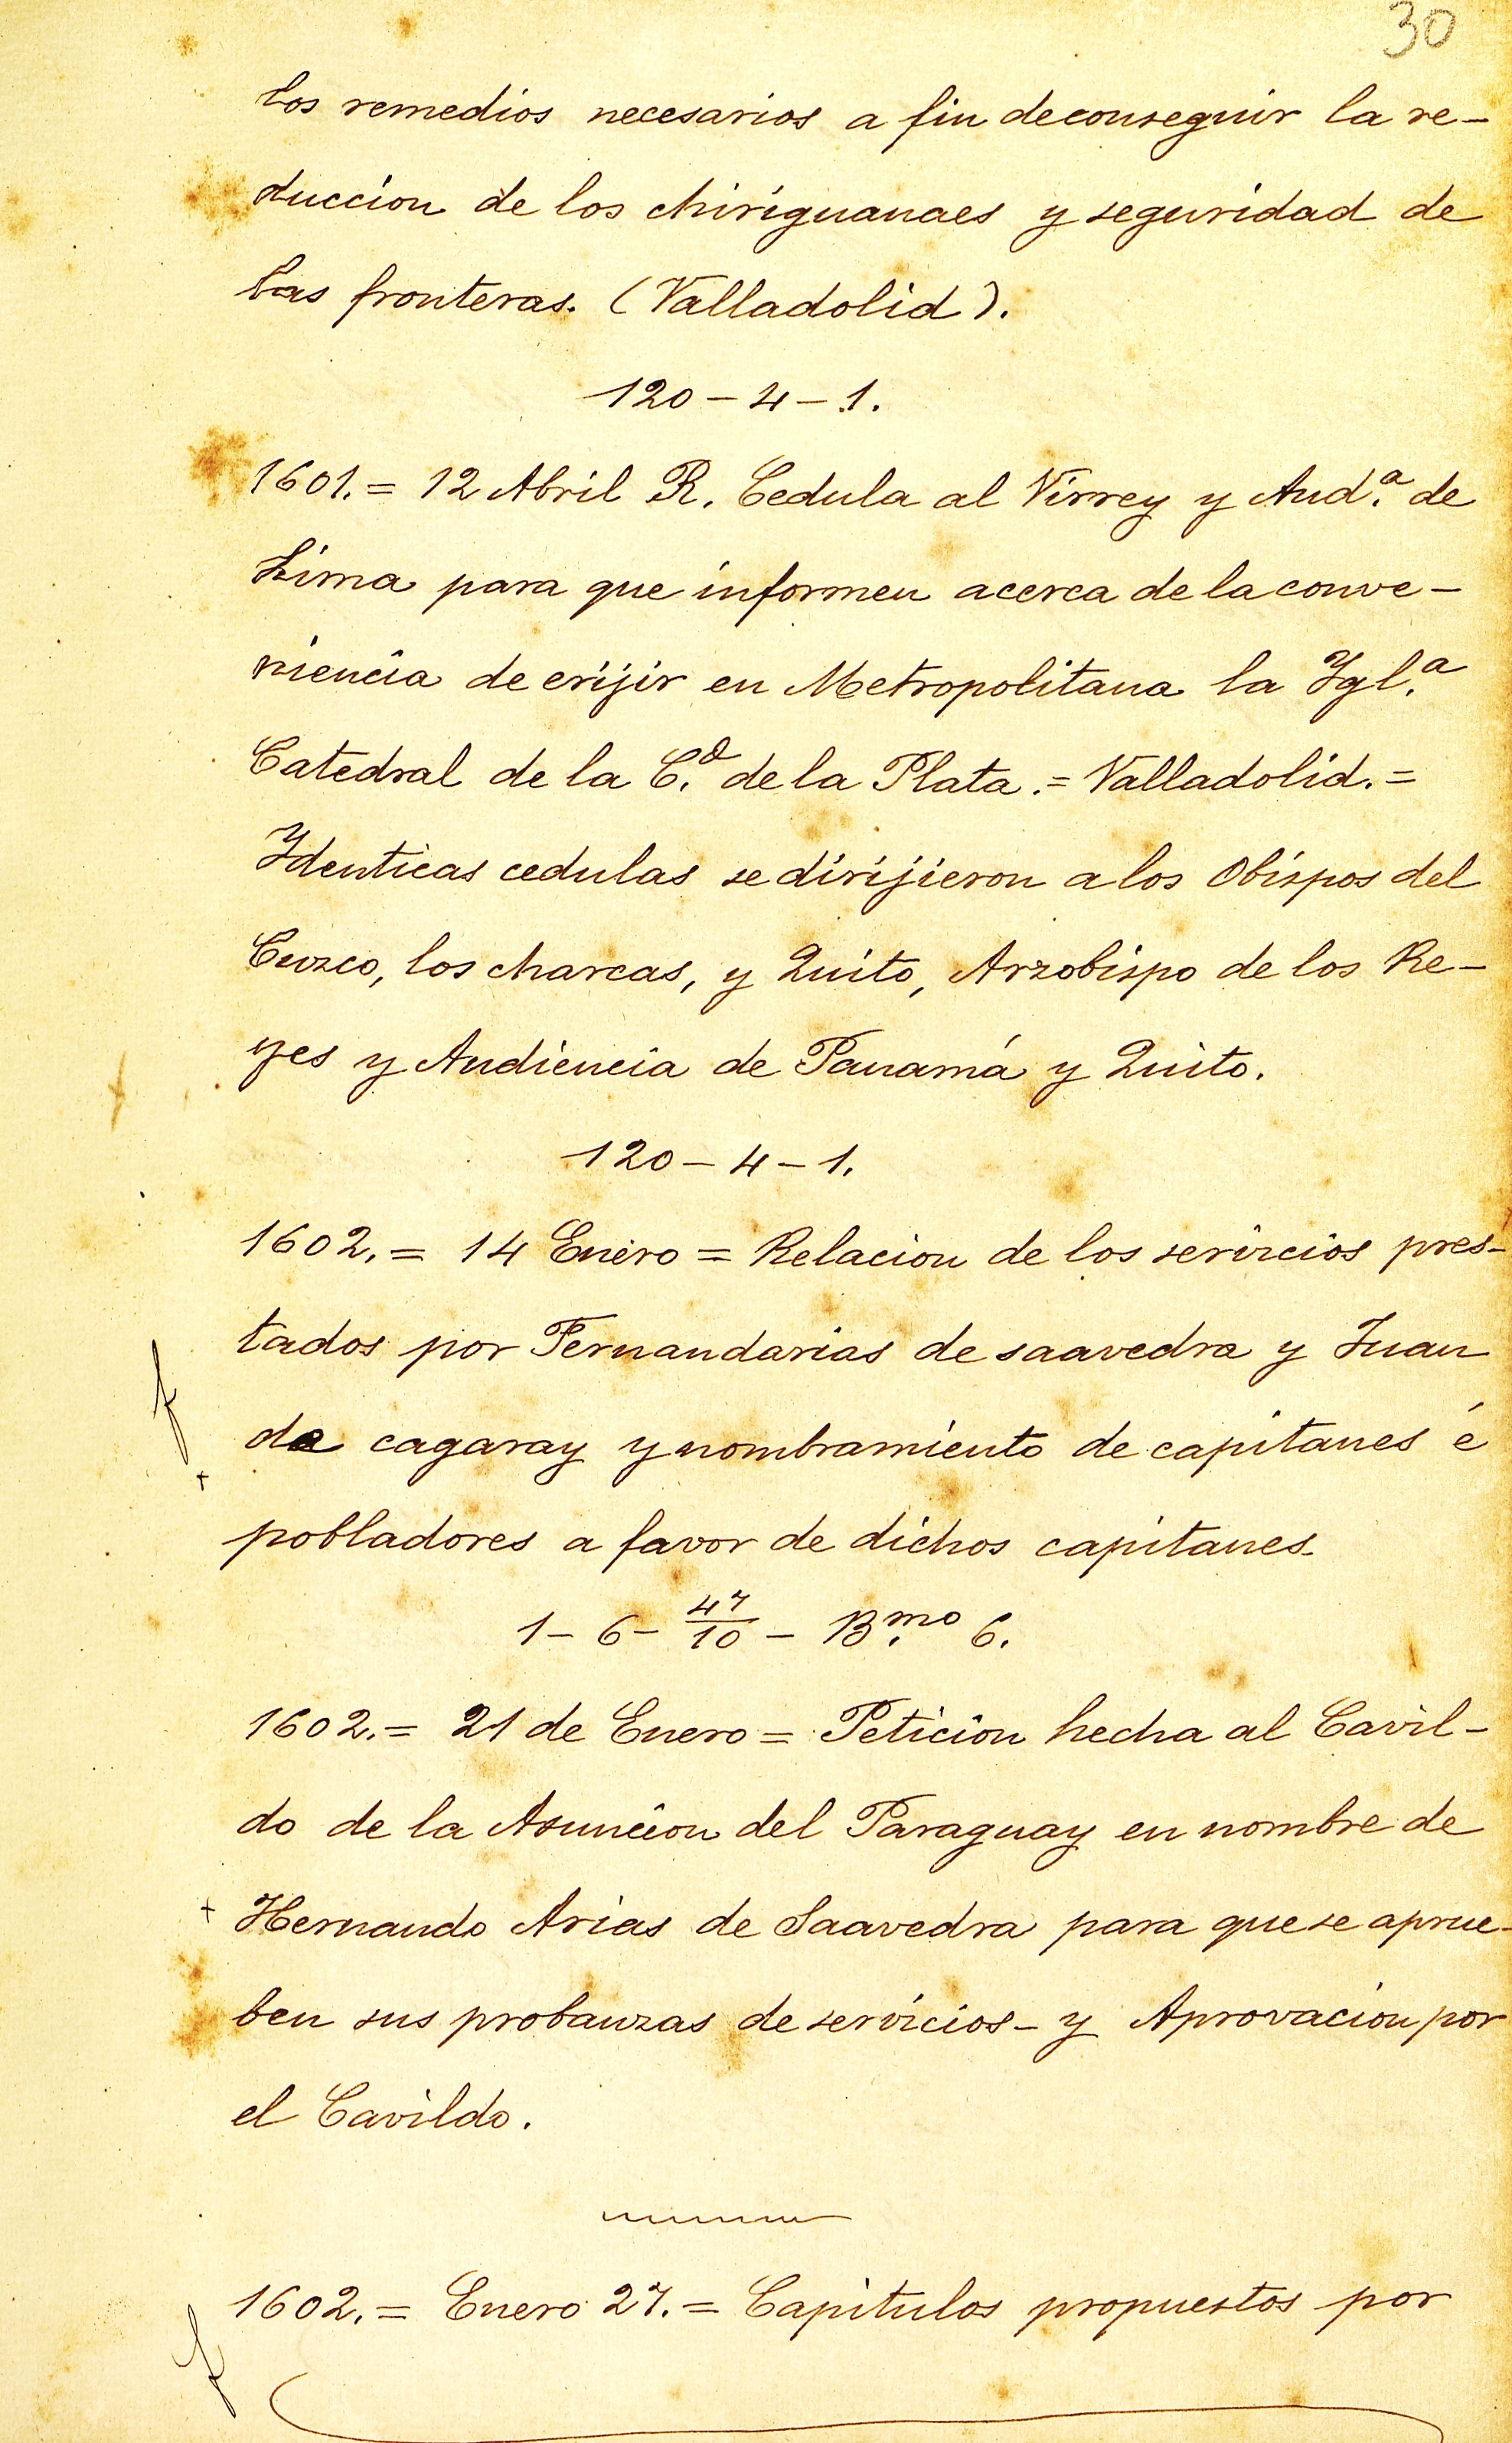 30
los remedios necesarios a fin de conseguir la re-
duccion de los chiriguanaes y seguridad de
las fronteras. (Valladolid).
120-4-1.
1601.= 12 Abril R. Cedula al Virrey y Aud.ª de
Lima para que informen acerca de la conve-
niencia de erijir en Metropolitana la Ygl.ª
Catedral de la C.d de la Plata.= Valladolid.=
Ydenticas cedulas se dirijieron a los Obispos del
Cuzco, los charcas, y Quito, Arzobispo de los Re-
yes y Audiencia de Panamá y Quito.
120-4-1.
1602.= 14 Enero = Relacion de los servicios pres-
tados por Fernandarias de saavedra y Juan
de cagaray y nombramiento de capitanes é
pobladores a favor de dichos capitanes.
1-6-47/10-B.mo 6.
1602.= 21 de Enero = Peticion hecha al Cavil-
do de la Asuncion del Paraguay en nombre de
+ Hernando Arias de Saavedra para que se aprue-
ben sus probanzas de servicios - y Aprovacion por
el Cavildo.
1602.= Enero 27.= Capitulos propuestos por